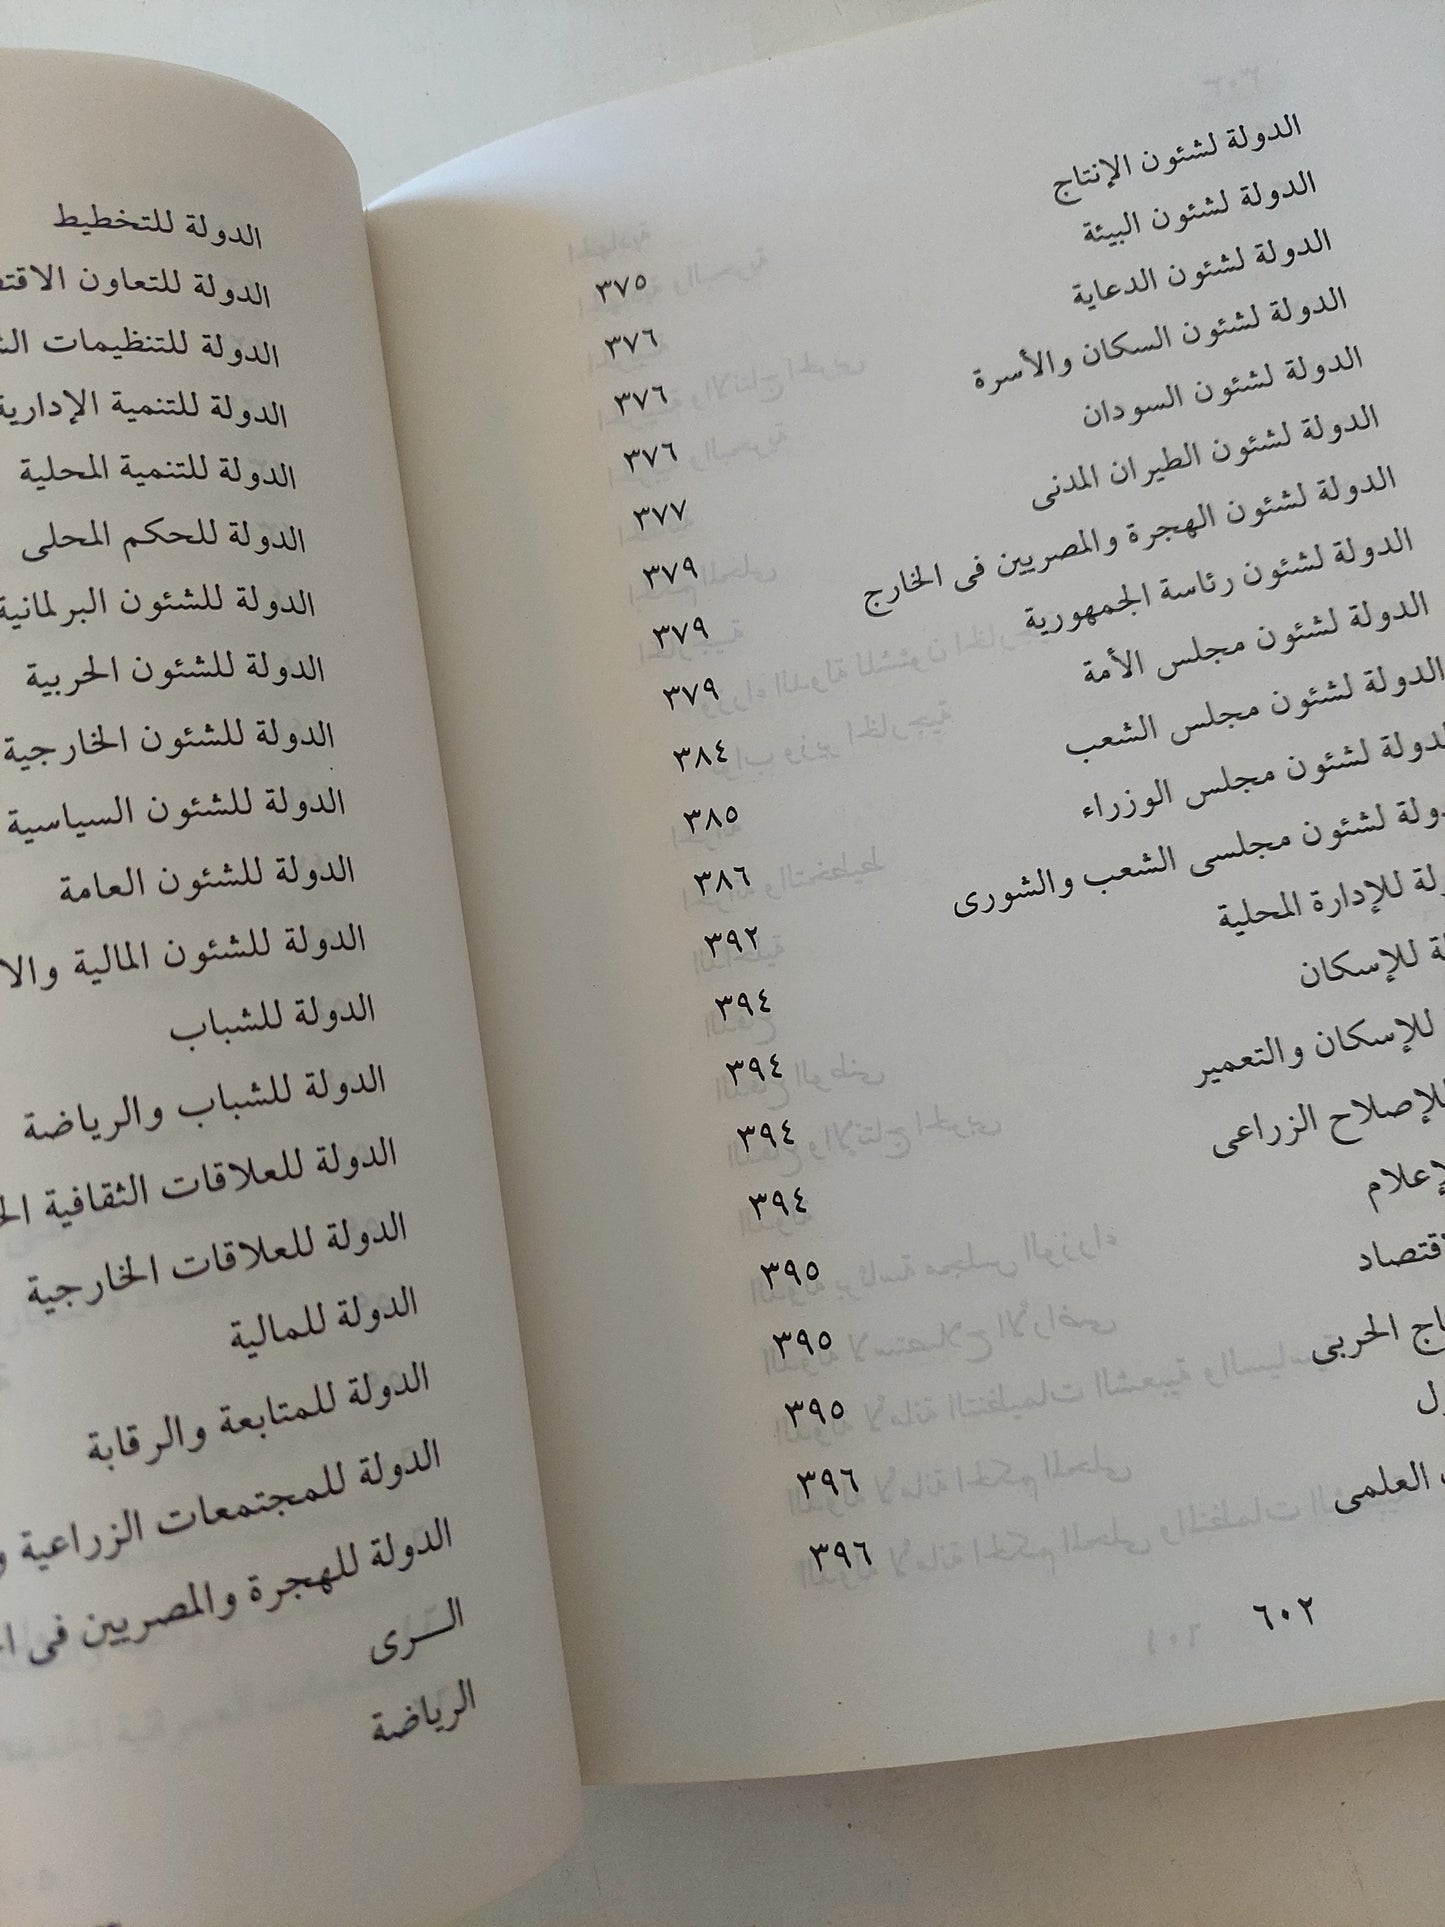 الدولة لشئون الإنتاج ٣٧٥
الدولة لشئون البيئة ٣٧٦
الدولة لشئون الدعاية ٣٧٦
الدولة لشئون السكان والأسرة ٣٧٦
الدولة لشئون السودان ٣٧٧
الدولة لشئون الطيران المدنى ٣٧٩
الدولة لشئون الهجرة والمصريين فى الخارج ٣٧٩
الدولة لشئون رئاسة الجمهورية ٣٧٩
الدولة لشئون مجلس الأمة ٣٨٤
الدولة لشئون مجلس الشعب ٣٨٥
لدولة لشئون مجلس الوزراء ٣٨٦
دولة لشئون مجلسى الشعب والشورى ٣٩٢
لة للإدارة المحلية ٣٩٤
ة للإسكان ٣٩٤
للإسكان والتعمير ٣٩٤
للإصلاح الزراعى ٣٩٤
لإعلام ٣٩٥
قتصاد ٣٩٥
اج الحربى ٣٩٥
ل ٣٩٦
العلمى ٣٩٦
٦٠٢
الدولة للتخطيط
الدولة للتعاون الاقتص
الدولة للتنظيمات الش
الدولة للتنمية الإدارية
الدولة للتنمية المحلية
الدولة للحكم المحلى
الدولة للشئون البرلمانية
الدولة للشئون الحربية
الدولة للشئون الخارجية
الدولة للشئون السياسية
الدولة للشئون العامة
الدولة للشئون المالية والا
الدولة للشباب
الدولة للشباب والرياضة
الدولة للعلاقات الثقافية الخ
الدولة للعلاقات الخارجية
الدولة للمالية
الدولة للمتابعة والرقابة
الدولة للمجتمعات الزراعية و
الدولة للهجرة والمصريين فى ا
الـــرى
الرياضة